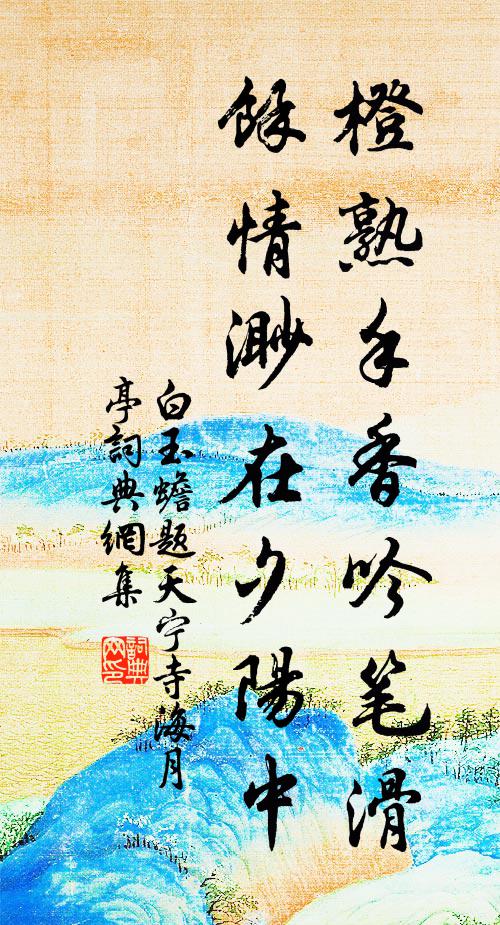 橙熟手香吟笔滑
餘情渺在夕陽中
白玉蟾题天宁寺海月
亭詞典網集
詞典
网印